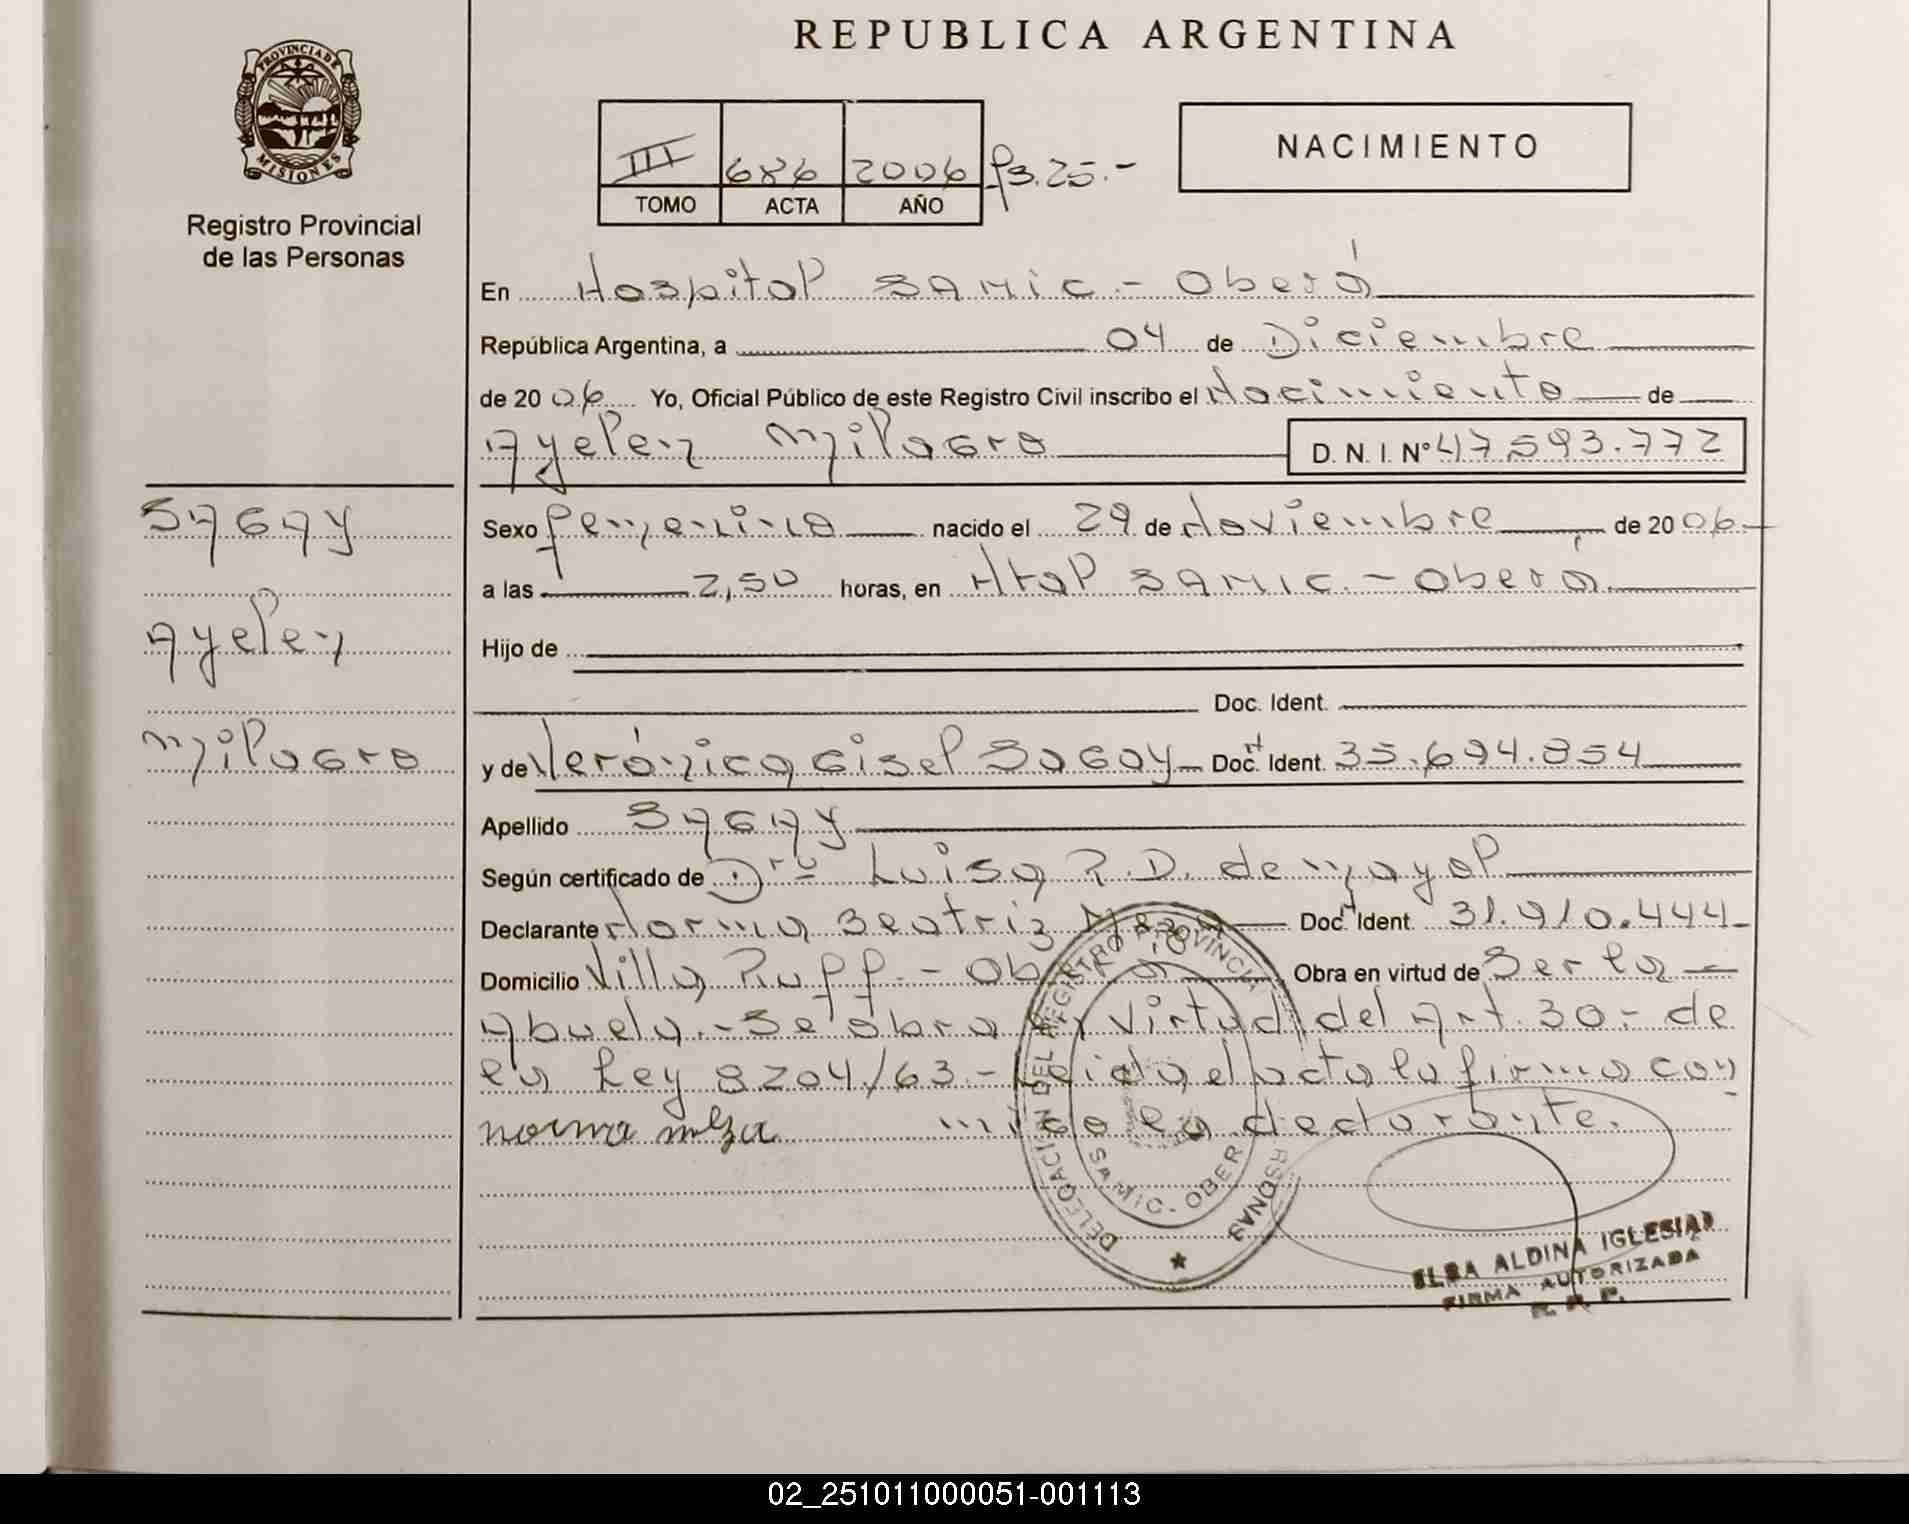 REPUBLICA ARGENTINA
PROVINCIA DE
MISIONES
Registro Provincial
de las Personas
III 686 2006 f3.25.-
TOMO ACTA AÑO
NACIMIENTO
En Hospital SAMIC - Oberá
República Argentina, a 04 de Diciembre
de 20 06 Yo, Oficial Público de este Registro Civil inscribo el Nacimiento de
Ayelen Milagro D. N. I. Nº 47.593.772
SAGAY
Ayelen
Milagro
Sexo femenino nacido el 29 de Noviembre de 20 06
a las 2,50 horas, en Htal SAMIC. - Oberá
Hijo de
Doc. Ident.
y de Verónica Gisel Sagay Doc. Ident. 35.694.854
Apellido SAGAY
Según certificado de Drª Luisa R.D. de Mayol
Declarante Norma Beatriz Meza Doc. Ident. 31.910.444
Domicilio Villa Ruff - Oberá Obra en virtud de Ser la
Abuela.- Se obra en virtud del Art. 30.- de
la Ley 8204/63.- Leida el acta la firma con
norma meza migo la declarante.
DELEGACIÓN DEL REGISTRO PROVINCIAL PERSONAS
SAMIC - OBERA
ELBA ALDINA IGLESIAS
FIRMA AUTORIZADA
R. P. P.
02_251011000051-001113